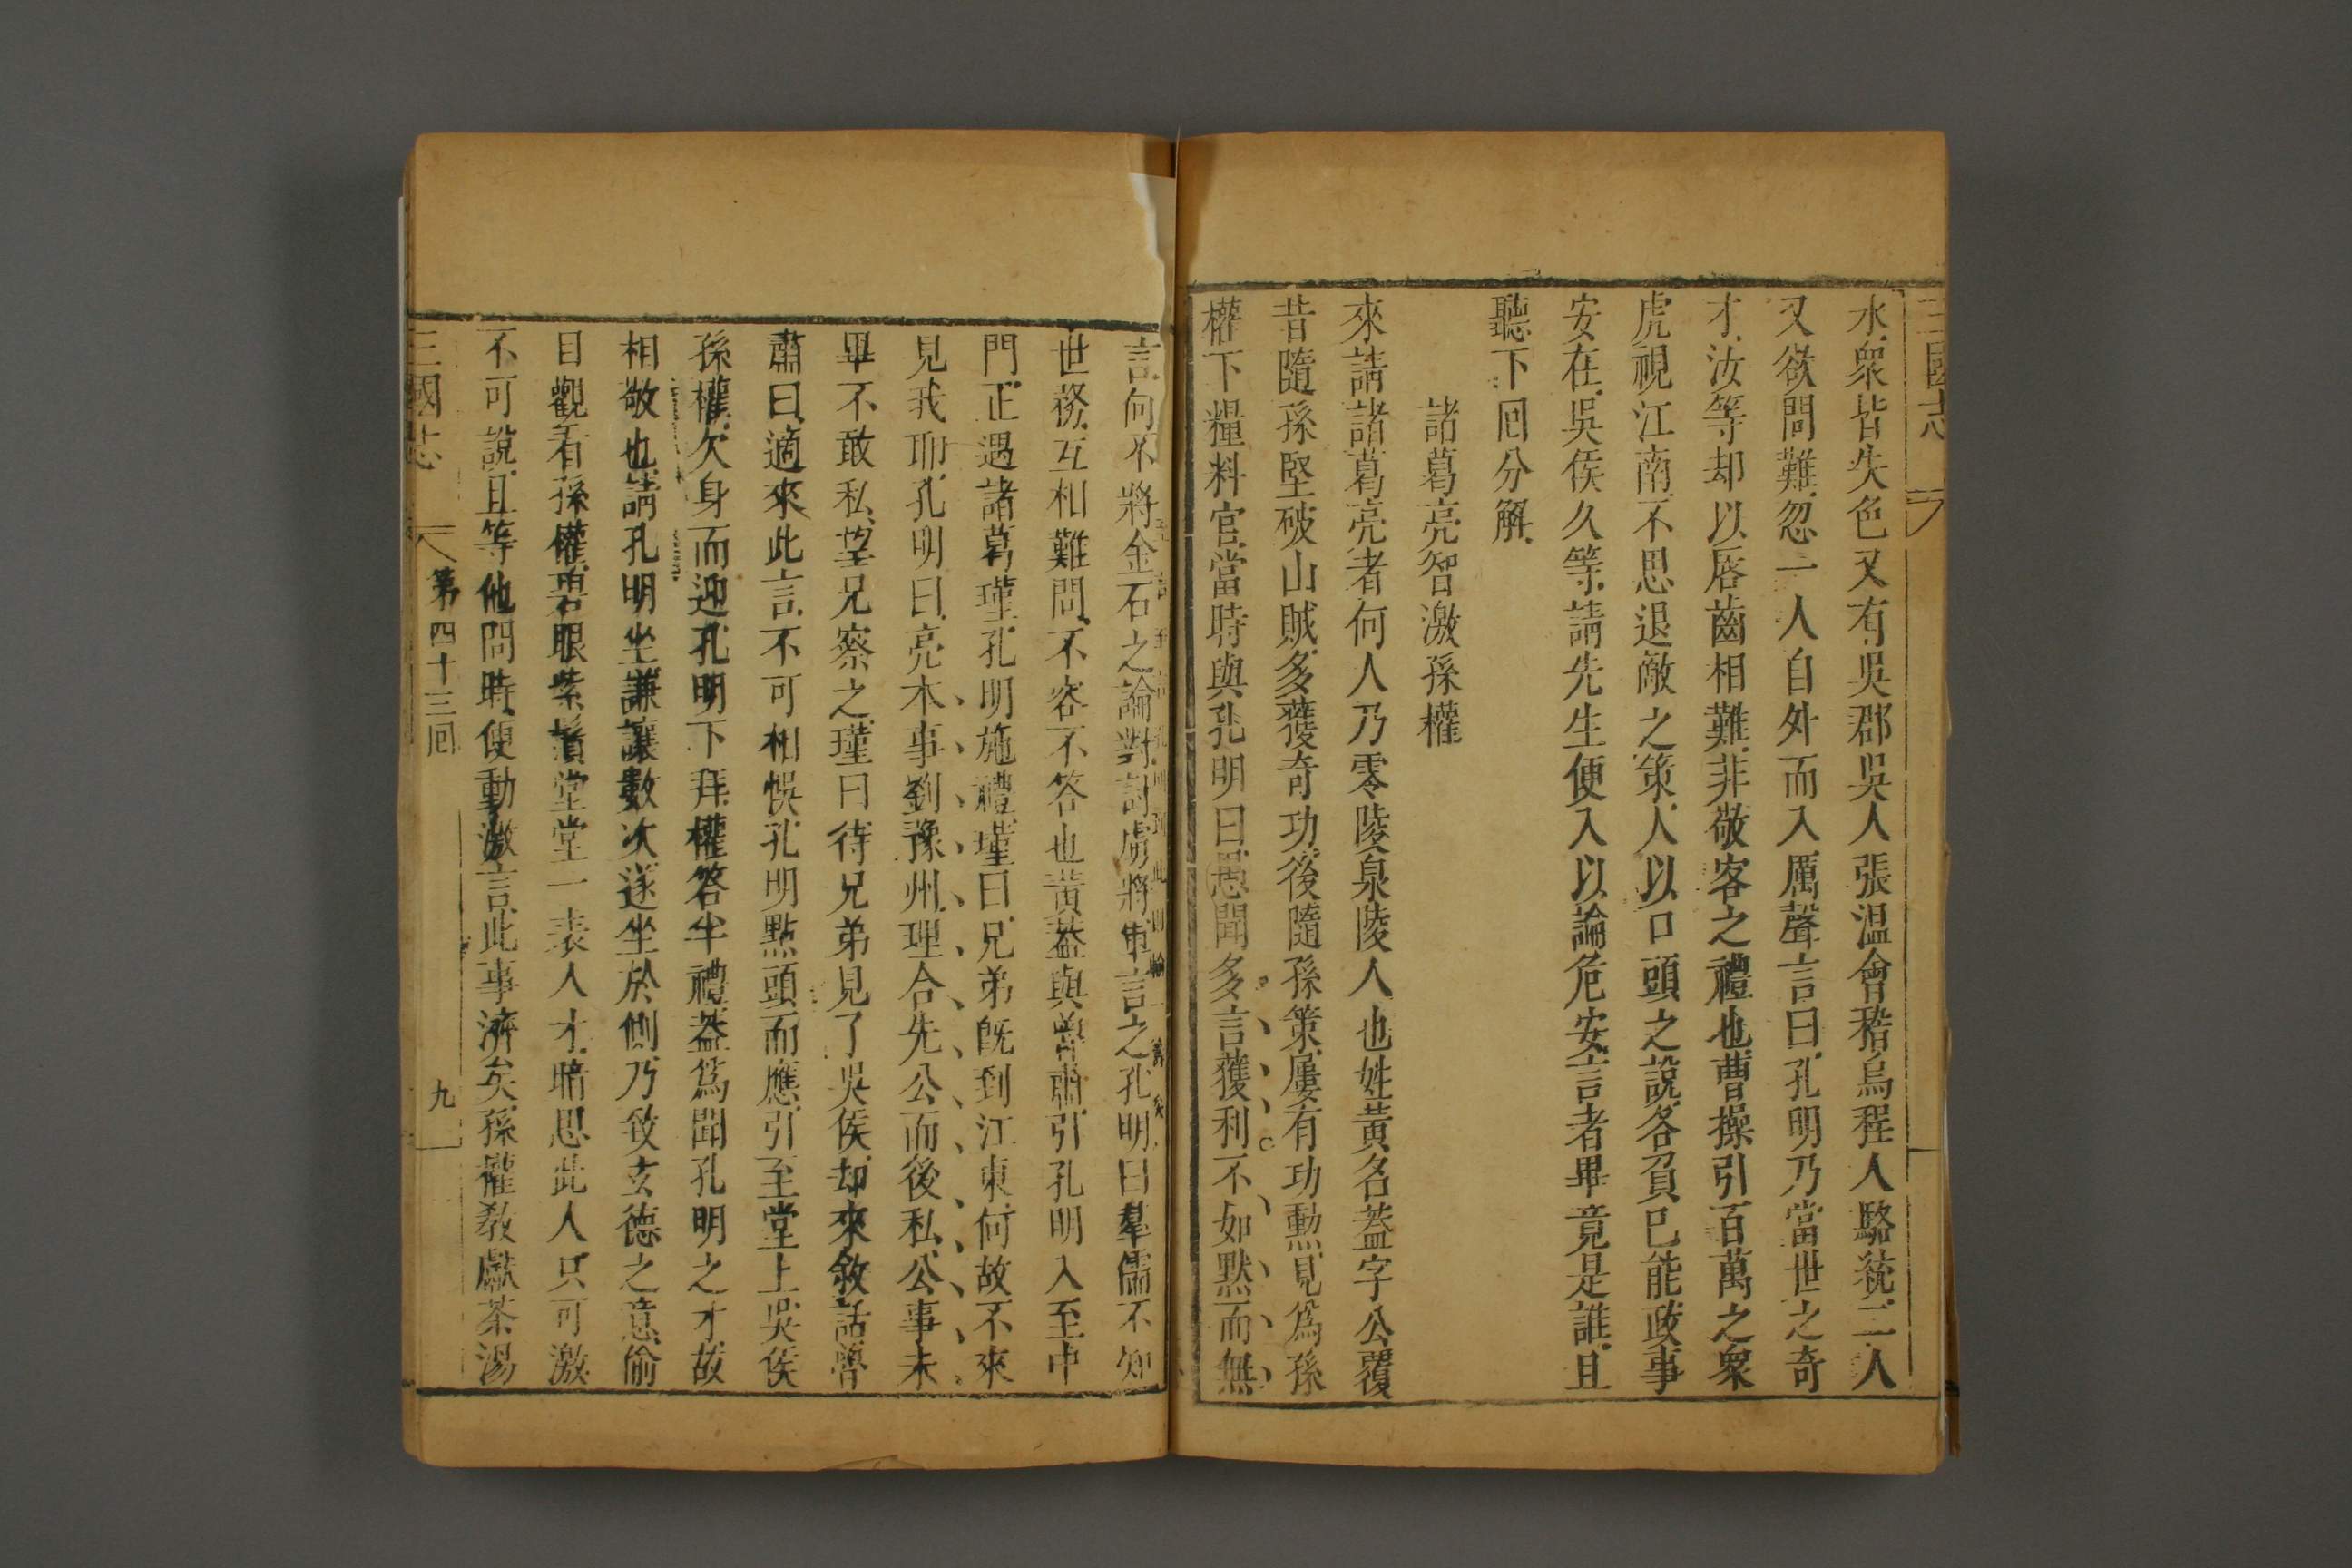 三國志
水衆皆失色又有吳郡吳人張温會稽烏程人駱統二人
又欲問難忽一人自外而入厲聲言曰孔明乃當世之奇
才汝等却以唇齒相難非敬客之禮也曹操引百萬之衆
虎視江南不思退敵之策人以口頭之說各負已能政事
安在吳侯久等請先生便入以論危安言者畢竟是誰且
聽下囘分解
諸葛亮智激孫權
來請諸葛亮者何人乃零陵泉陵人也姓黃名葢字公覆
昔隨孫堅破山賊多獲奇功後隨孫策屢有功勳見爲孫
權下糧料官當時與孔明曰愚聞多言獲利不如黙而無
言何不將金石之論對討虜將軍言之孔明曰羣儒不知
世務互相難問不容不答也黃葢與魯肅引孔明入至中
門正遇諸葛瑾孔明施禮瑾曰兄弟旣到江東何故不來
見我耶孔明曰亮本事劉豫州理合先公而後私公事未
畢不敢私望兄察之瑾曰待兄弟見了吳侯却來敘話魯
肅曰適來此言不可相悞孔明點頭而應引至堂上吳侯
孫權欠身而迎孔明下拜權答半禮葢爲聞孔明之才故
相敬也請孔明坐謙讓數次遂坐於側乃致玄德之意偷
目觀看孫權碧眼紫鬚堂堂一表人才暗思此人只可激
不可說且等他問時便動激言此事濟矣孫權敎獻茶湯
三國志 第四十三囘 九